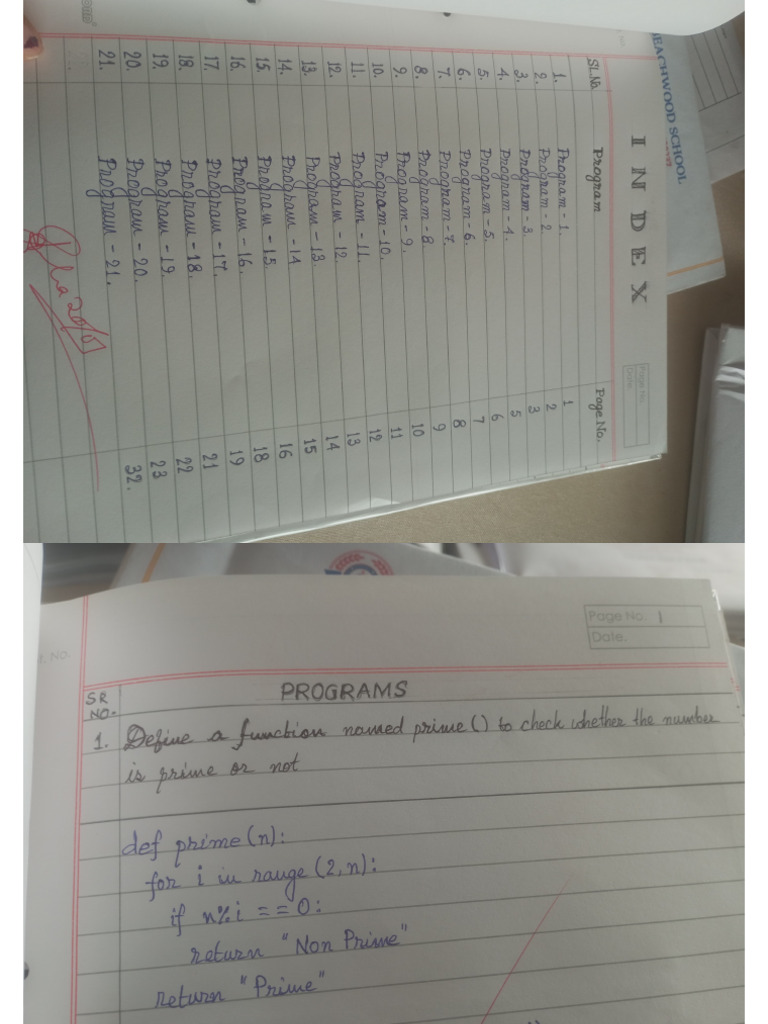 BEACHWOOD SCHOOL
INDEX
Page No.
Date.
SL.No. Program Page No.
1. Program - 1. 1
2. Program - 2. 2
3. Program - 3. 3
4. Program - 4. 5
5. Program - 5. 6
6. Program - 6. 7
7. Program - 7. 8
8. Program - 8. 9
9. Program - 9. 10
10. Program - 10. 11
11. Program - 11. 12
12. Program - 12. 13
13. Program - 13. 14
14. Program - 14 15
15. Program - 15. 16
16. Program - 16. 18
17. Program - 17. 19
18. Program - 18. 21
19. Program - 19. 22
20. Program - 20. 23
21. Program - 21. 32.
Page No. 1
Date.
SR NO. PROGRAMS
1. Define a function named prime() to check whether the number
is prime or not
def prime(n):
for i in range(2,n):
if n%i == 0:
return "Non Prime"
return "Prime"